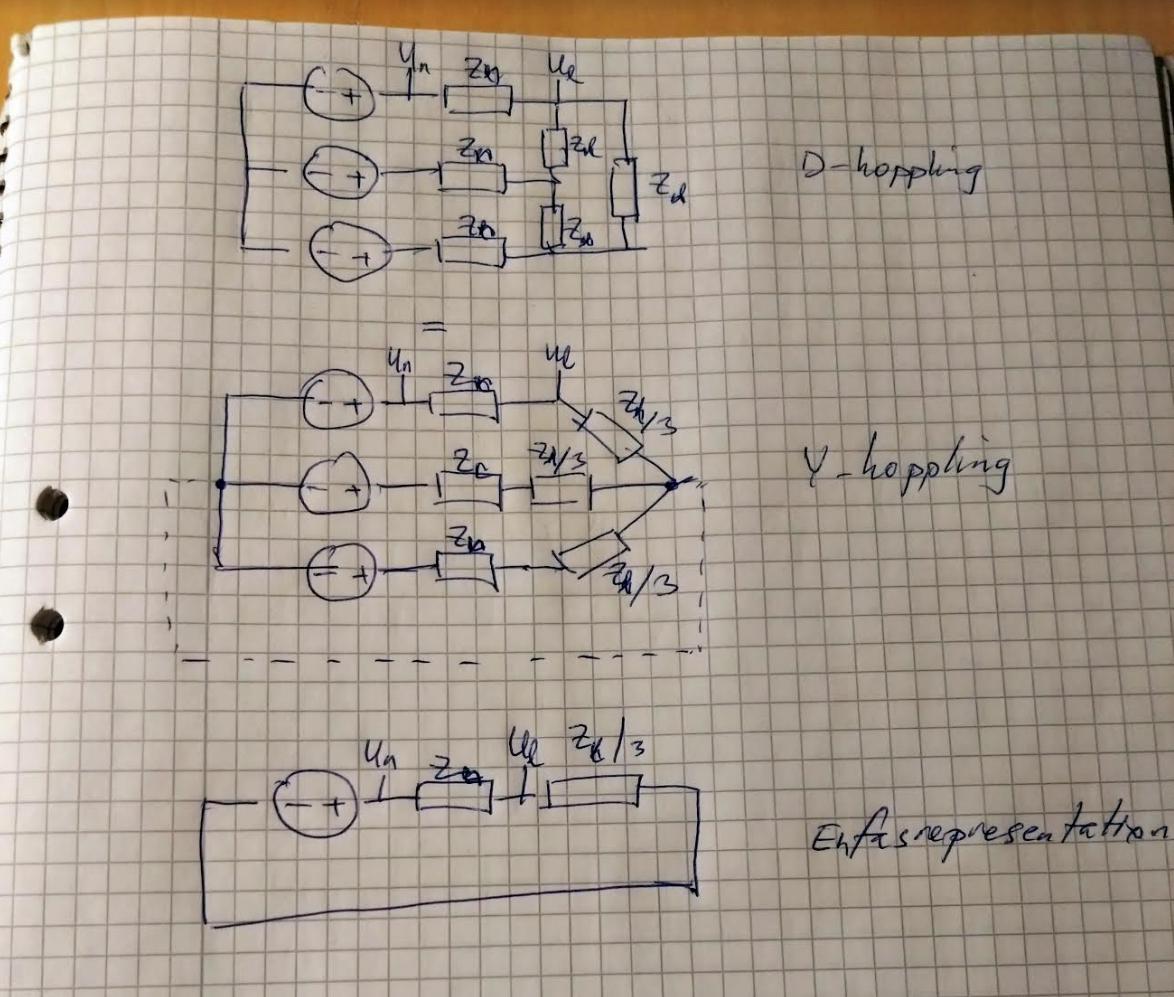 Un Zn Ul
- +
Zl
Zn
- +
Zl
D-koppling
Zn
- +
=
Un Zn Ul
- +
Zl/3
Zn Zl/3
- +
Y-koppling
Zn
- +
Zl/3
Un Zn Ul Zl/3
- +
Enfasrepresentation